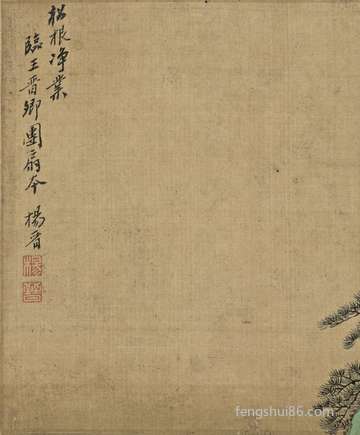 松根净業
臨王晋卿團扇本 楊晋
楊
晋
fengshui86.com